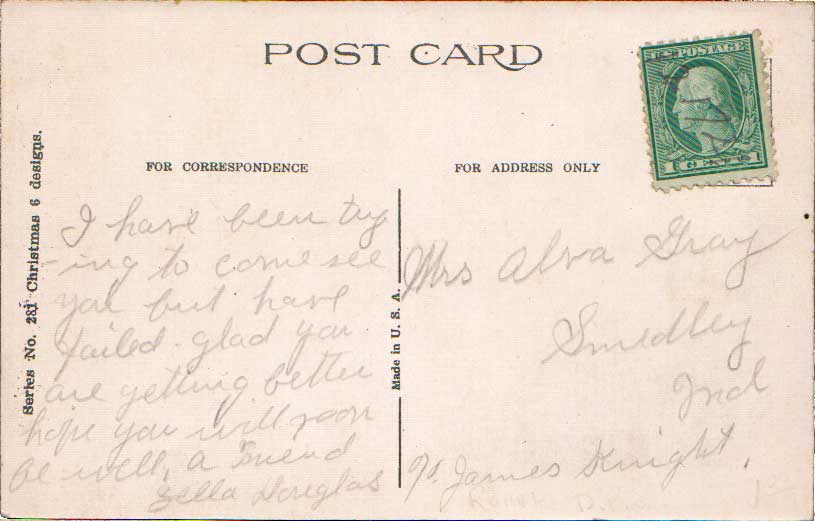 POST CARD
U.S. POSTAGE
1 CENTS 1
FOR CORRESPONDENCE
FOR ADDRESS ONLY
Series No. 281 Christmas 6 designs.
Made in U. S. A.
I have been try
-ing to come see
you but have
failed. glad you
are getting better
hope you will soon
be well, a Friend
Douglas
Mrs Alva Gray
Smedley
Ind
James Knight.